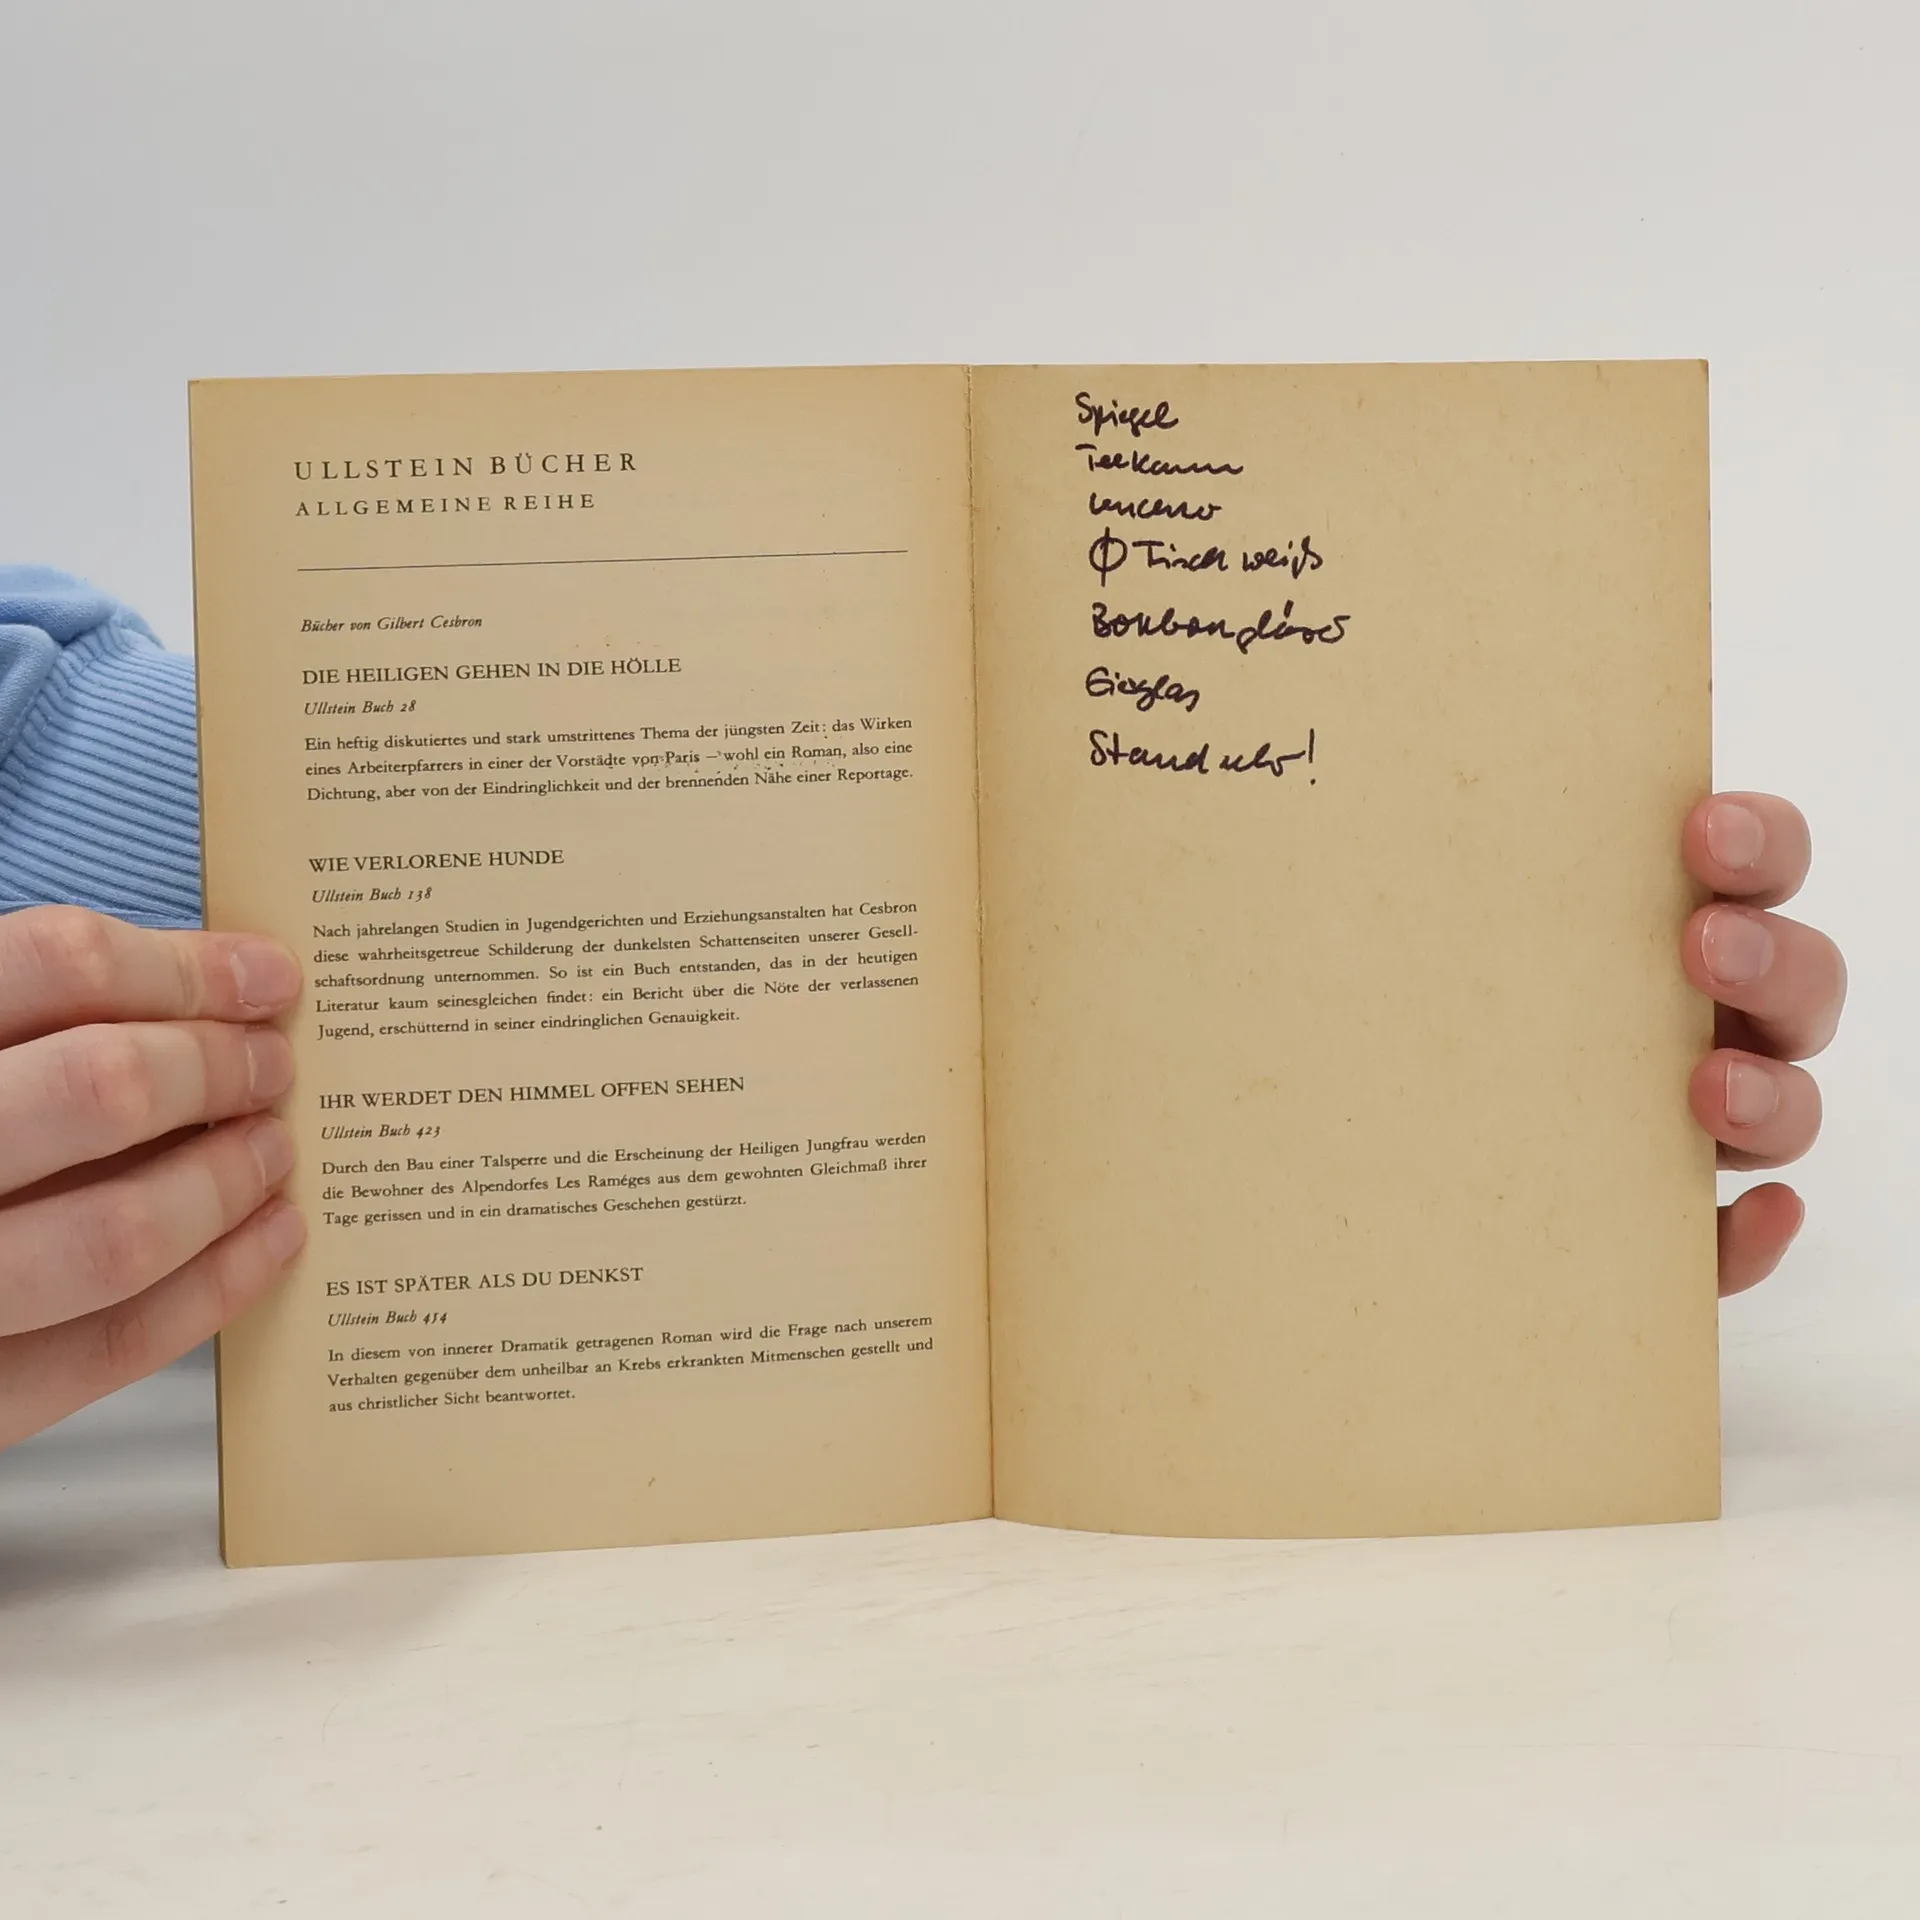 ULLSTEIN BÜCHER
ALLGEMEINE REIHE
Bücher von Gilbert Cesbron
DIE HEILIGEN GEHEN IN DIE HÖLLE
Ullstein Buch 28
Ein heftig diskutiertes und stark umstrittenes Thema der jüngsten Zeit: das Wirken
eines Arbeiterpfarrers in einer der Vorstädte von Paris – wohl ein Roman, also eine
Dichtung, aber von der Eindringlichkeit und der brennenden Nähe einer Reportage.
WIE VERLORENE HUNDE
Ullstein Buch 138
Nach jahrelangen Studien in Jugendgerichten und Erziehungsanstalten hat Cesbron
diese wahrheitsgetreue Schilderung der dunkelsten Schattenseiten unserer Gesell-
schaftsordnung unternommen. So ist ein Buch entstanden, das in der heutigen
Literatur kaum seinesgleichen findet: ein Bericht über die Nöte der verlassenen
Jugend, erschütternd in seiner eindringlichen Genauigkeit.
IHR WERDET DEN HIMMEL OFFEN SEHEN
Ullstein Buch 423
Durch den Bau einer Talsperre und die Erscheinung der Heiligen Jungfrau werden
die Bewohner des Alpendorfes Les Raméges aus dem gewohnten Gleichmaß ihrer
Tage gerissen und in ein dramatisches Geschehen gestürzt.
ES IST SPÄTER ALS DU DENKST
Ullstein Buch 454
In diesem von innerer Dramatik getragenen Roman wird die Frage nach unserem
Verhalten gegenüber dem unheilbar an Krebs erkrankten Mitmenschen gestellt und
aus christlicher Sicht beantwortet.
Spiegel
Teekanne
Tisch weiß
Bonbongläser
Standuhr!